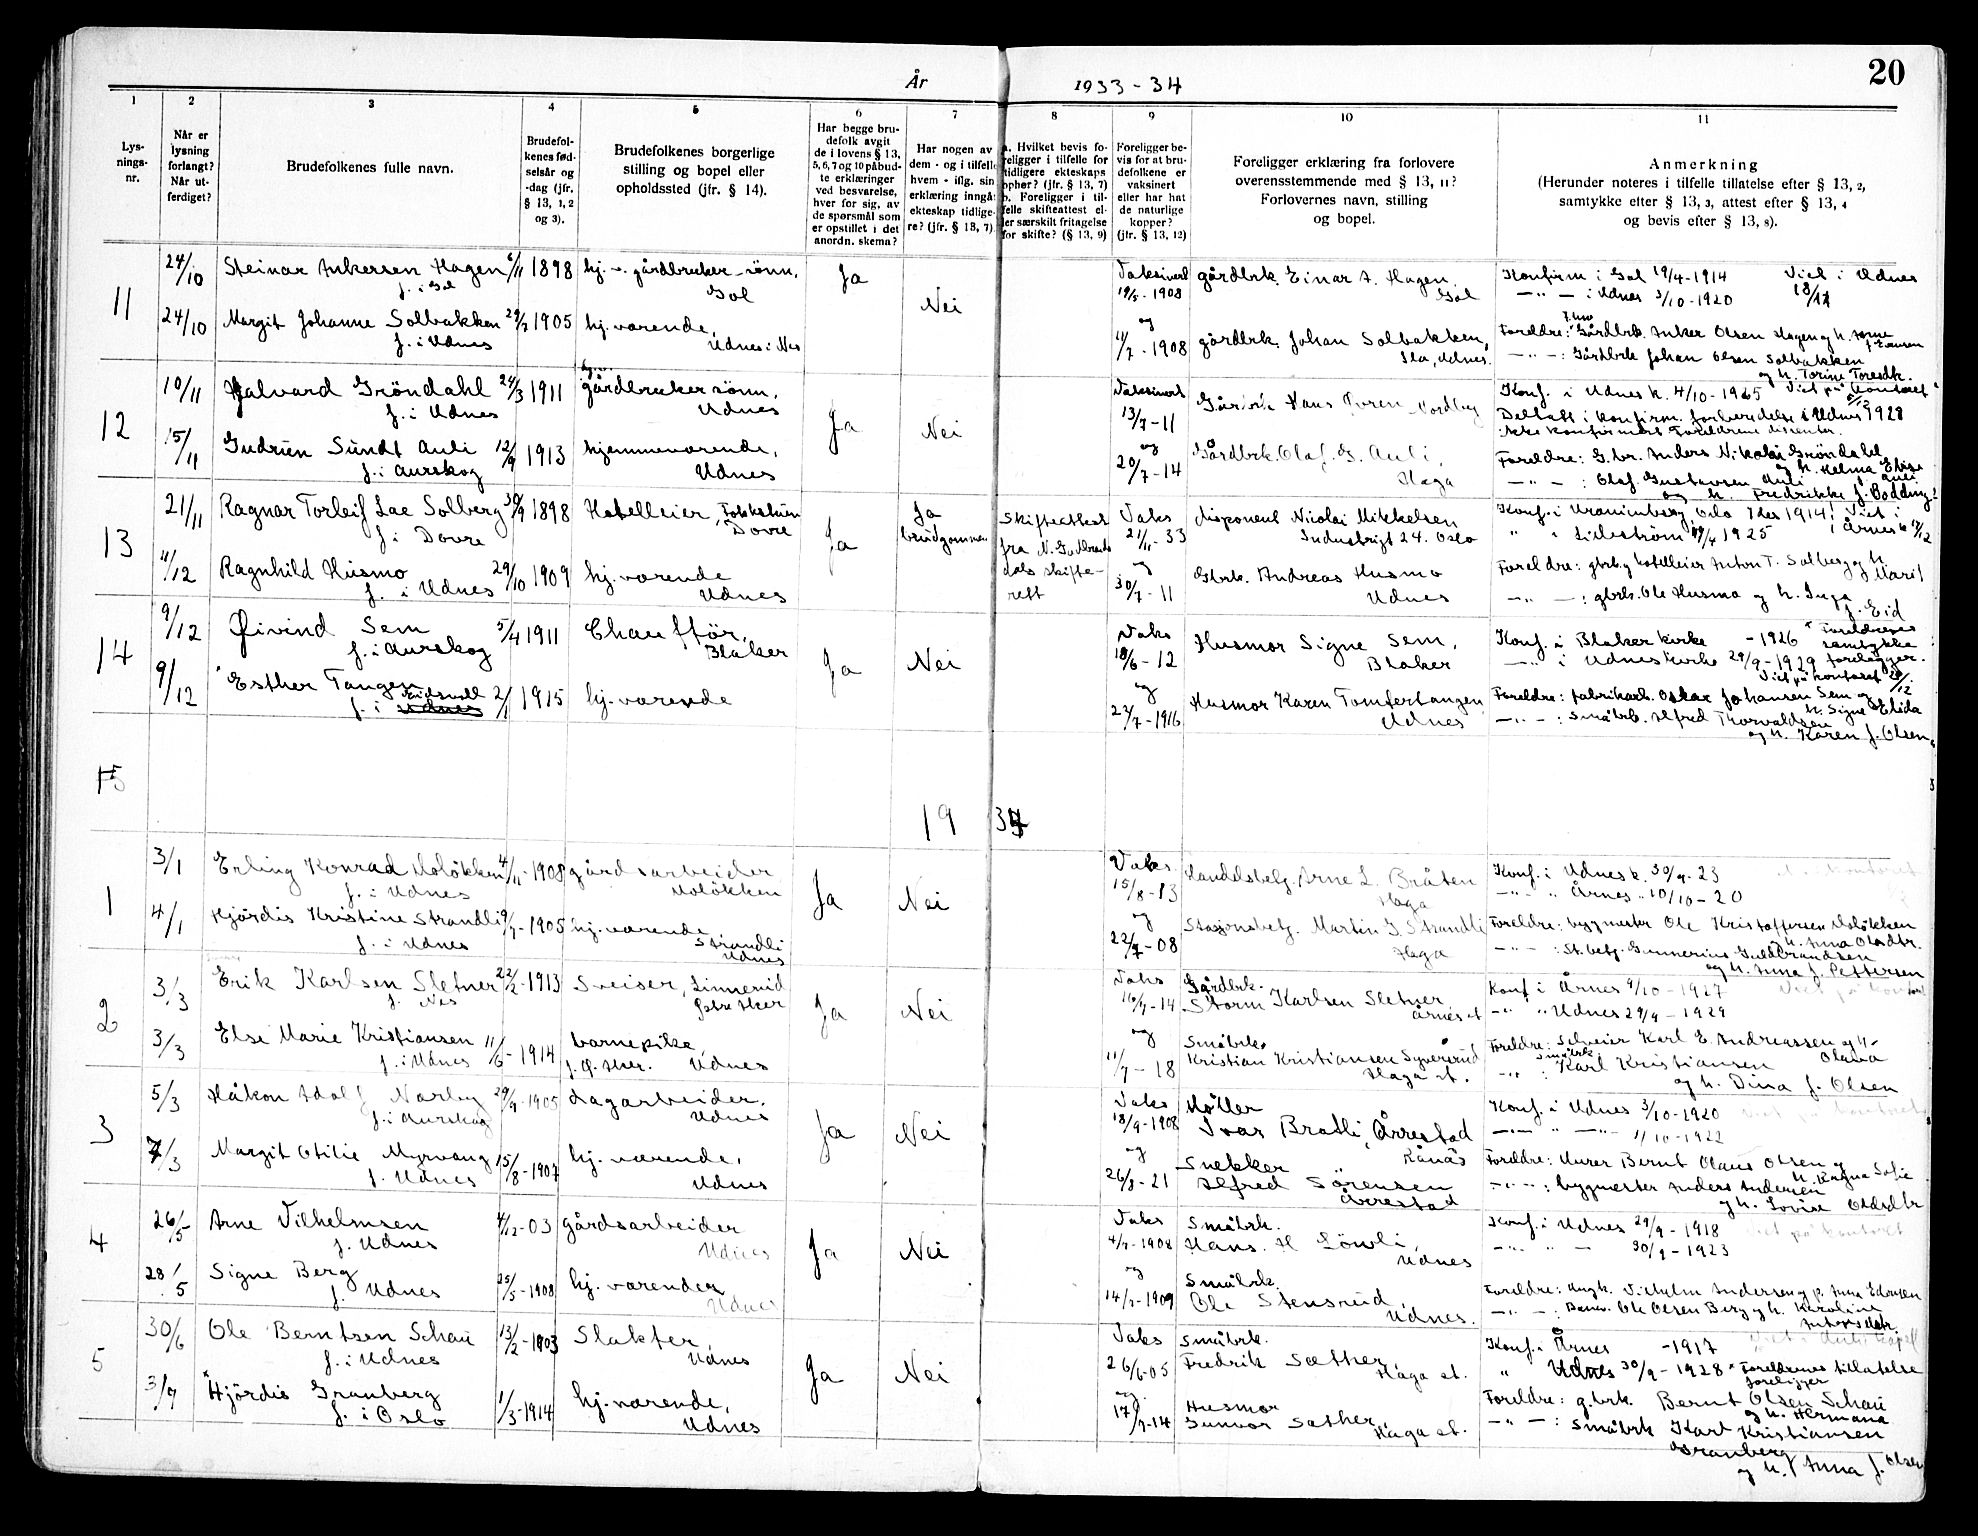 År 1933-34
20
1 2 3 4 5 6 7 8 9 10 11
Lys-
nings-
nr.
Når er
lysning
forlangt?
Når ut-
ferdiget?
Brudefolkenes fulle navn.
Brudefol-
kenes fød-
selsår og
-dag (jfr.
§ 13, 1, 2
og 3).
Brudefolkenes borgerlige
stilling og bopel eller
opholdssted (jfr. § 14).
Har begge bru-
defolk avgit
de i lovens § 13,
5, 6, 7 og 10 påbud-
te erklæringer
ved besvarelse,
hver for sig, av
de spørsmål som
er opstillet i det
anordn. skema?
Har nogen av
dem - og i tilfelle
hvem - iflg. sin
erklæring inngå
ekteskap tidlige-
re? (jfr. § 13, 7).
a. Hvilket bevis fo-
religger i tilfelle for
tidligere ekteskaps
ophør? (jfr. § 13, 7)
b. Foreligger i til-
felle skifteattest el-
ler særskilt fritagelse
for skifte? (§ 13, 9)
Foreligger be-
vis for at bru-
defolkene er
vaksinert
eller har hat
de naturlige
kopper?
(jfr. § 13, 12)
Foreligger erklæring fra forlovere
overensstemmende med § 13, 11?
Forlovernes navn, stilling
og bopel.
Anmerkning
(Herunder noteres i tilfelle tillatelse efter § 13, 2,
samtykke efter § 13, 3, attest efter § 13, 4
og bevis efter § 13, 8).
11
24/10 Steinar Ankersen Hagen 6/11 1898 hj. v. gårdbruker-sønn, Ja
f. i Gol Gol
Nei
24/10 Margit Johanne Solbakken 1905 hj. værende,
f. i Udnes Udnes i Nes
Vaksinert
1908
og
11/7 - 1908
gårdbrk. Einar A. Hagen
Gol
gårdbrk. Johan Solbakken,
Udnes.
Konfirm i Gol 19/4-1914 Viet i Udnes
i Udnes 3/10-1920
Foreldre: Gårdbrk. Anker Olsen Hagen
Gårdbrk Johan Olsen Solbakken
12
10/11 Halvard Gröndahl 24/3 1911 gårdbrukersønn,
f. i Udnes Udnes
Ja Nei
15/11 Gudrun Sundt Auli 12/9 1913 hjemmeværende,
f. i Aurskog Udnes
Vaksinert
13/7-11
og
20/7-14
Gårdbrk. Olaf. G. Auli,
Haga
Konf. i Udnes k. 4/10- Viet på kontoret
Deltatt i konfirm. forberedelse i Udnes 1928
ikke konfirmert Foreldrene dissenter.
Foreldre: G.br. Anders Nikolai Gröndahl
Olaf Gustavsen Auli
og h. Fredrikke f. Bødding
13
21/11 Ragnar Torleif Lae Solberg 1898 Hotelleier, Fokkstun
f. i Dovre Dovre
Ja
Ja
brudgommen
11/12 Ragnhild Husmo 29/10 1909 hj. værende
f. i Udnes Udnes
Skifteattest
fra N. Gudbrands
dals skifte-
rett
Vaks
21/11-33
og
30/7-11
disponent Nicolai Mikkelsen
Industrigt 24. Oslo
Gbrk. Andreas Husmo
Udnes
Oslo 1914. Viet i
Lillestrøm 1925 Årnes k
Foreldre: gbrk og hotelleier Anton T. Solberg og h.
Marit
gbrk. Ole Husmo og h. Inga
f. Eid
14
9/12 Øivind Sem 5/4 1911 Chauffør,
f. i Aurskog Blaker
Ja Nei
9/12 Esther Tangen 2/1 1915 hj. værende
f. i Eidsvoll
Vaks
18/6-12
og
-1916
Husmor Signe Sem,
Blaker
Husmor Karen Tomtertangen
Udnes
Konf. i Blaker kirke -1926 Foreldrenes
samtykke
i Udnes kirke 29/9-1929 foreligger.
Viet på kontoret
Foreldre: fabrikarb. Oskar Johansen Sem og
h. Signe Elida
Småbrk. Alfred Thorvaldsen
og h. Karen f. Olsen
15
19 34
1
3/1 Erling Konrad Moløkken 4/11-1908 gårdsarbeider
f. i Udnes Moløkken
Ja Nei
4/1 Hjördis Kristine Strandli 1905 hj. værende
Strandli
f. i Udnes Udnes
Vaks
15/8-13
og
08
Handelsbetj. Arne L. Bråten
Haga
Stasjonsbetj. Martin G. Strandli
Haga
Konf. i Udnes k. 30/9-23
Årnes 10/10-20
Foreldre: bygmester Ole Kristoffersen Moløkken
h. Anna Olsdtr.
St. betj. Gunnerius Guldbrandsen
og h. Anna f. Pettersen
2
3/3 Erik Karlsen Sletner 22/2-1913 Sveiser, Linnerud
f. Nes
Ja Nei
3/3 Else Marie Kristiansen 11/6-1914 barnepike,
f. i Udnes Udnes
Vaks
14
og
11/7-18
Gårdbrk.
Storm Karlsen Sletner,
Årnes st
Småbrk.
Kristian Kristiansen Syverud
Haga st.
Konf i Årnes 9/10-1927 Viet på kontoret
Udnes 29/9-1929
Foreldre: Sveier Karl E. Andreassen og h.
Olava
småbrk Karl Kristiansen
og h. Dina f. Olsen
3
5/3 Håkon Adolf Norby 29/9-1905 Lagarbeider,
f. i Aurskog Udnes
Ja Nei
7/3 Margit Otilie Myrvang 15/8-1907 hj. værende,
f. Udnes Udnes
Vaks
18/9-1908
og
26/8-21
Møller
Ivar Bratli, Årrestad
Rånås
Snekker
Alfred Sörensen
Årrestad
Konf. i Udnes 3/10-1920 Viet på kontoret
1/10-1922
Foreldre: Murer Bernt Olaus Olsen og
h. Ragna Sofie
bygmester Anders Andersen
og h. Lovise Olsdtr
4
26/5 Arne Vilhelmsen 4/12-03 gårdsarbeider
f. Udnes Udnes
Ja Nei
28/5 Signe Berg 25/5-1908 hj. værender
f. Udnes Udnes
Vaks
4/9-1908
og
1909
Småbrk.
Hans. H Löwli,
Udnes
Småbrk.
Ole Stensrud,
Udnes.
Konf. i Udnes 29/9-1918 Viet på kontoret
30/9-1923
Foreldre: Ungk. Vilhelm Andersen og p. Anna Edvardsen
Ole Olsen Berg og h. Karoline
5
30/6 Ole Berntsen Schau 13/2-1903 Slakter,
f. i Udnes Udnes
Ja Nei
3/7 Hjördis Granberg 1/3-1914 hj. værende,
f. i Oslo Udnes
Vaks
26/6-05
og
-14
Småbrk.
Fredrik Sæther,
Haga st.
Husmor
Gunvor Sæther,
Haga st.
Konf. i Årnes -1917
Udnes 30/9-1928 Foreldrenes tillatelse
foreligger
Foreldre: g.brk. Bernt Olsen Schau
og h. Hermana
Småbrk Karl Kristiansen
Granberg
og h. Anna f. Olsen